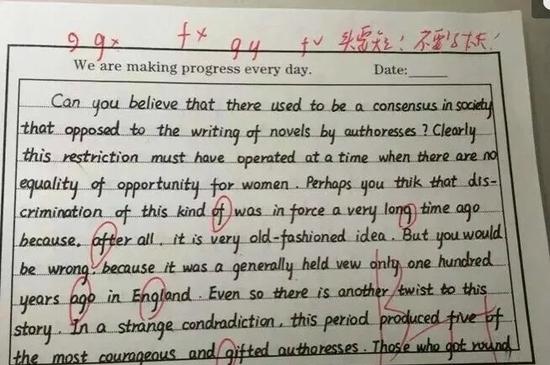 g gx fx gy fv 头要短！不要写太大！
We are making progress every day. Date:
Can you believe that there used to be a consensus in society
that opposed to the writing of novels by authoresses ? Clearly
this restriction must have operated at a time when there are no
equality of opportunity for women . Perhaps you thik that dis-
crimination of this kind of was in force a very long time ago
because, after all , it is very old-fashioned idea . But you would
be wrong, because it was a generally held vew only one hundred
years ago in England . Even so there is another twist to this
story . In a strange condradiction , this period produced five of
the most courageous and gifted authoresses . Those who got round